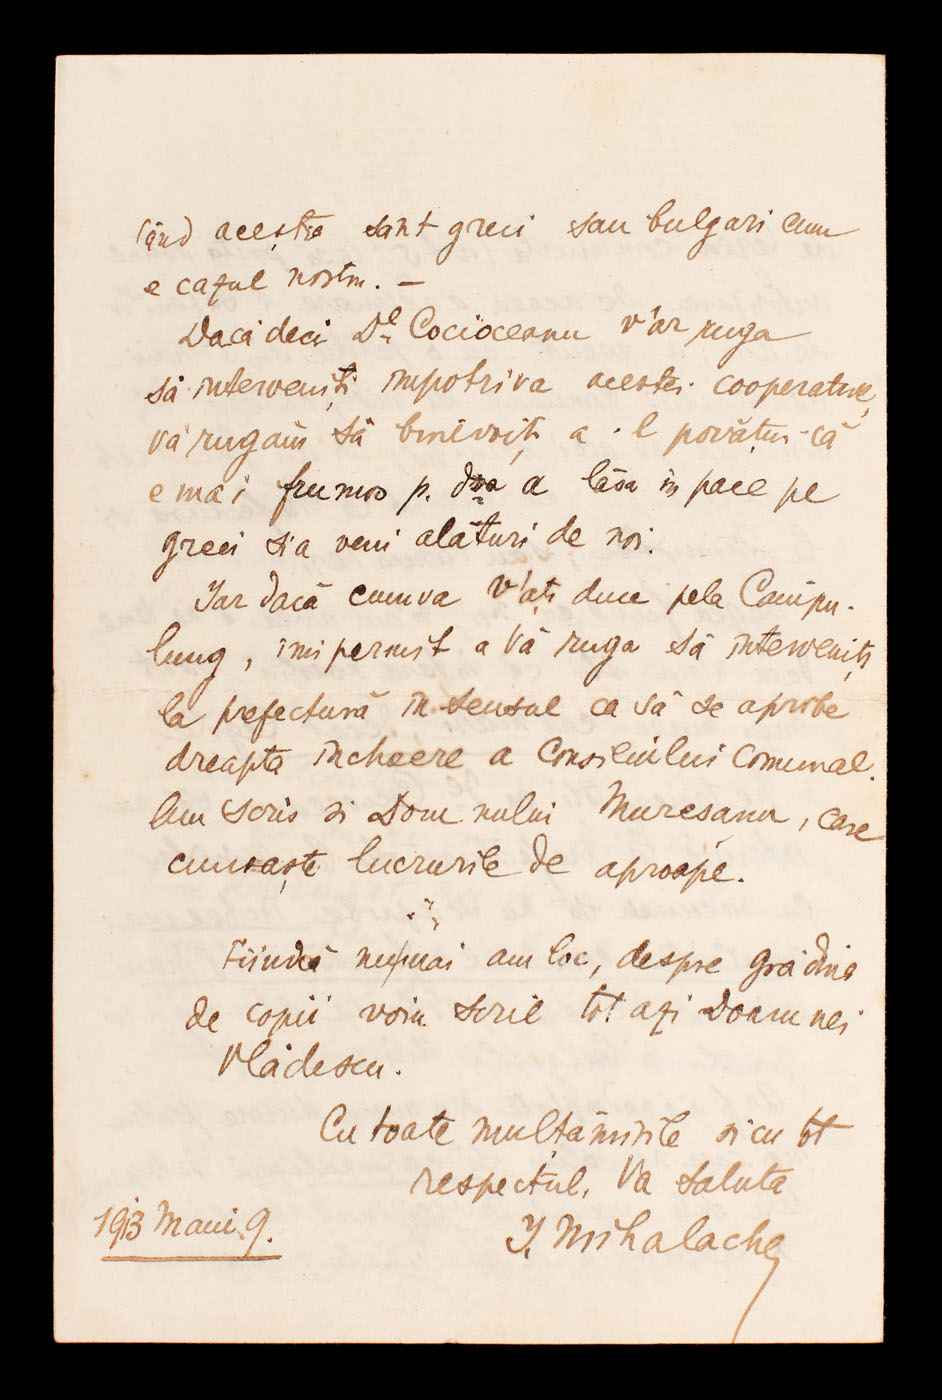 când aceștia sânt greci sau bulgari cum
e cazul nostru. —
Dacă deci Dl Cocioceanu v'ar ruga
să interveniți împotriva acestei cooperative,
vă rugăm să binevoiți a-l povățui că
e mai frumos p. dsa a lăsa în pace pe
greci și a veni alături de noi.
Iar dacă cumva v'ați duce pela Câmpu-
lung, îmi permit a Vă ruga să interveniți
la prefectură în sensul ca să se aprobe
dreapta încheere a Consiliului Comunal.
Am scris și Domnului Mureșanu, care
cunoaște lucrurile de aproape.
Fiindcă nu mai am loc, despre grădina
de copii voiu scrie tot azi Doamnei
Vlădescu.
Cu toate mulțămirile și cu tot
respectul, Vă salută
I. Mihalache
1913 Maiu 9.